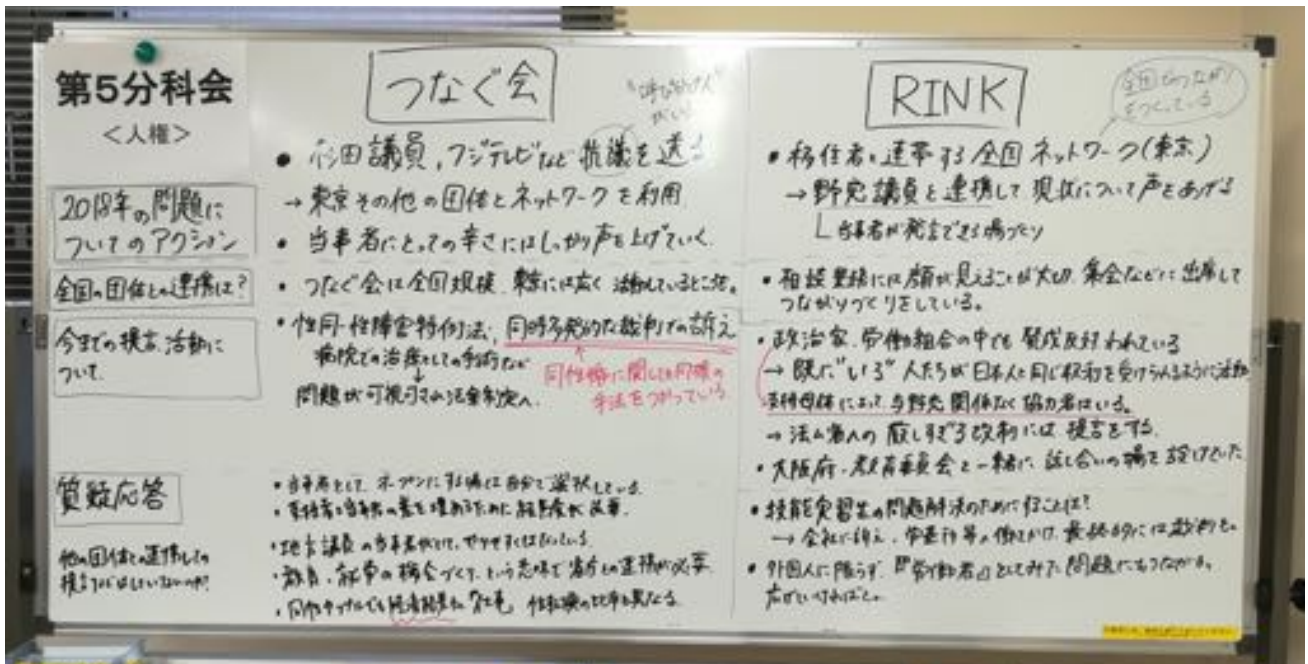 第5分科会
<人権>
2018年の問題に
ついてのアクション
全国の団体との連携は?
今までの提言、活動に
ついて
質疑応答
他の団体との連携しての
つなぐ会
"呼びかけ人"
がいる
• 杉田議員,フジテレビなど 抗議を送る
→ 東京その他の団体とネットワークを利用
• 当事者にとっての辛さにはしっかり声を上げていく
• つなぐ会は全国規模 東京には広く活動しているところも。
• 性同一性障害特例法; 同時多発的な裁判での訴え
病院での治療としての手術など
問題が可視可
同性婚に関しても同様の
手法をつかっている
• 当事者として、オープンにする場は自分で選択している。
• 地方議員の当事者がいて、やりやすくはなっている
RINK
全国でつながり
をつくっている
• 移住者と連帯する全国ネットワーク(東京)
→ 野党議員と連携して現状について声をあげる
└ 当事者が発言できる場づくり
• 相談業務には顔が見えることが大切 集会などに出席して
つながりづくりをしている。
• 政治家、労働組合の中でも 賛成反対われている
→ 既に"いる"人たちが日本人と同じ権利を受けられるように活動
支持母体によって、与野党関係なく協力者はいる。
→ 法務省への厳しすぎる改制には提言をする
• 大阪府・教育委員会と一緒に話し合いの場を設けていた
• 技能実習生の問題解決のためにすることは?
→ 会社に訴え、労基署等への働きかけ、最終的には裁判も。
• 外国人に限らず、『労働者』としてみた問題にもつながる。
広げていければと。